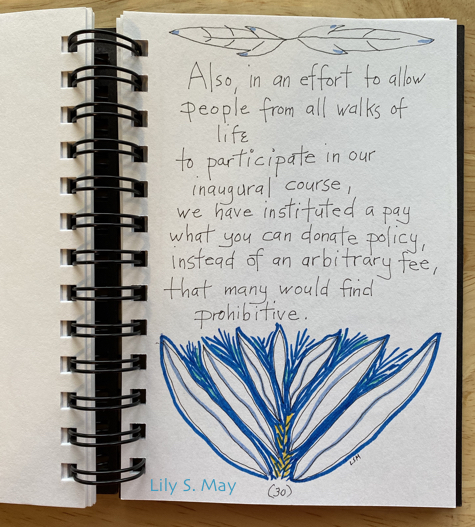 Also, in an effort to allow
people from all walks of
life
to participate in our
inaugural course,
we have instituted a pay
what you can donate policy,
instead of an arbitrary fee,
that many would find
prohibitive.
LSM
Lily S. May
(30)